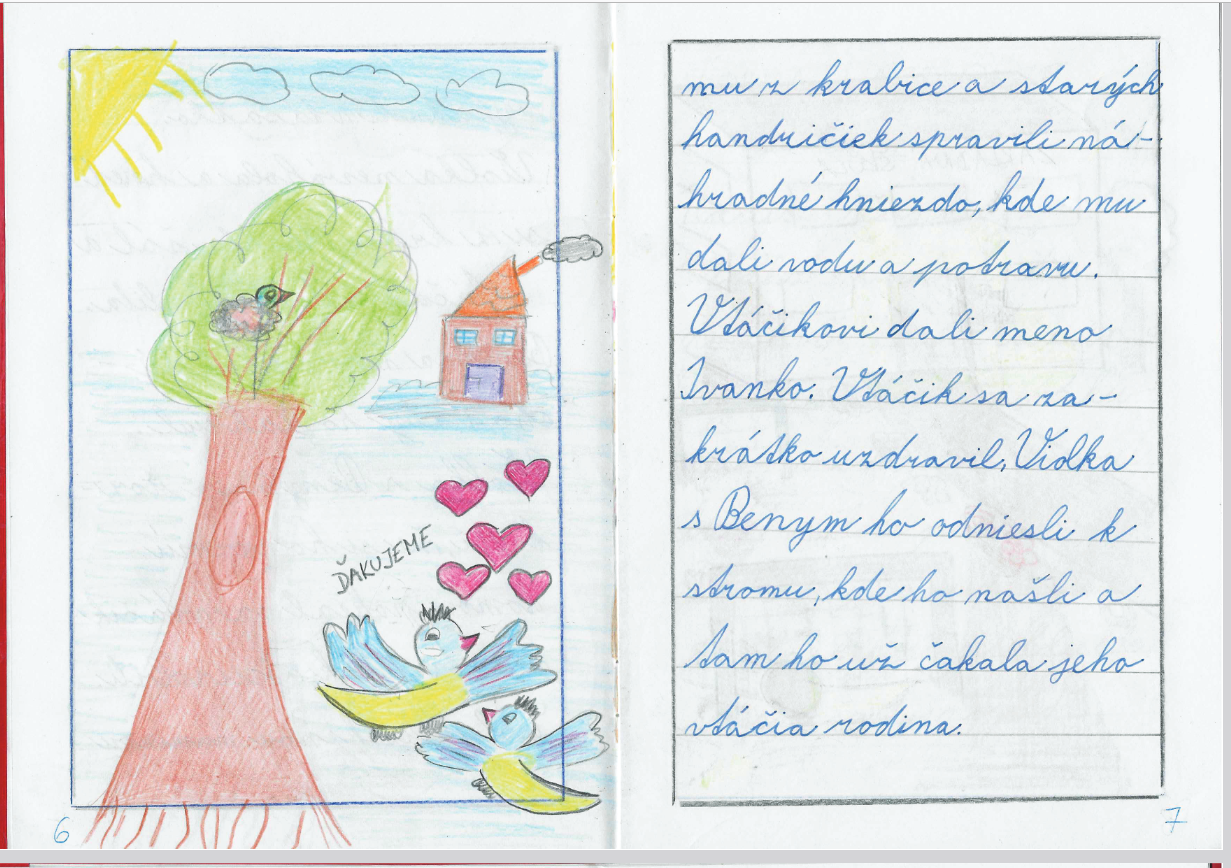 ĎAKUJEME
6
mu z krabice a starých
handričiek spravili ná-
hradné hniezdo, kde mu
dali vodu a potravu.
Vtáčikovi dali meno
Ivanko. Vtáčik sa za-
krátko uzdravil, Violka
s Benym ho odniesli k
stromu, kde ho našli a
tam ho už čakala jeho
vtáčia rodina.
7